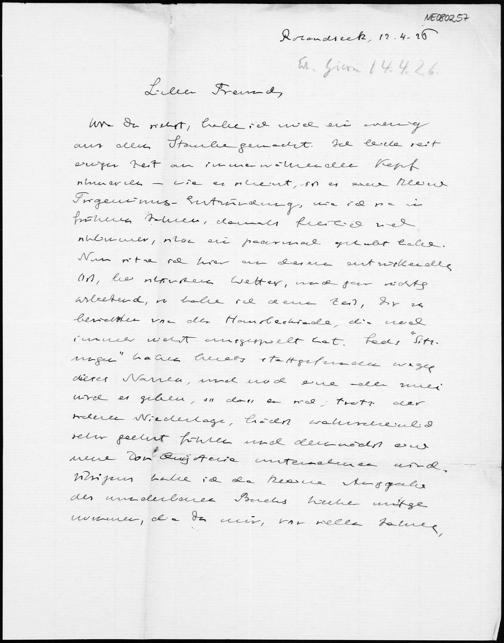 NE080257
Rolandseck, 12.4.26
14.4.26.
Lieber Freund,
Wie Du siehst, habe ich mich ein wenig
aus dem Staube gemacht. Ich leide seit
einiger Zeit an immerwährenden Kopf
schmerzen – wie es scheint, ist es eine kleine
Trigeminus-Entzündung, wie ich sie in
früheren Jahren, damals freilich viel
schlimmer, schon ein paarmal gehabt habe.
Nun sitze ich hier an diesem entzückenden
Ort, bei schönstem Wetter, und gar nichts
arbeitend, so habe ich denn Zeit, Dir zu
berichten von der die noch
immer nicht ausgespielt hat. Sechs "Sitz-
ungen" haben bereits stattgefunden wegen
dieses Narren, und noch eine oder zwei
wird es geben, so dass er sich, trotz der
sicheren Niederlage, höchst wahrscheinlich
sehr geehrt fühlen und demnächst eine
neue Don Quijoterie unternehmen wird.
Übrigens habe ich die kleine Ausgabe
des wunderbaren Buchs hierher mitge
nommen, die Du mir, vor vielen Jahren,